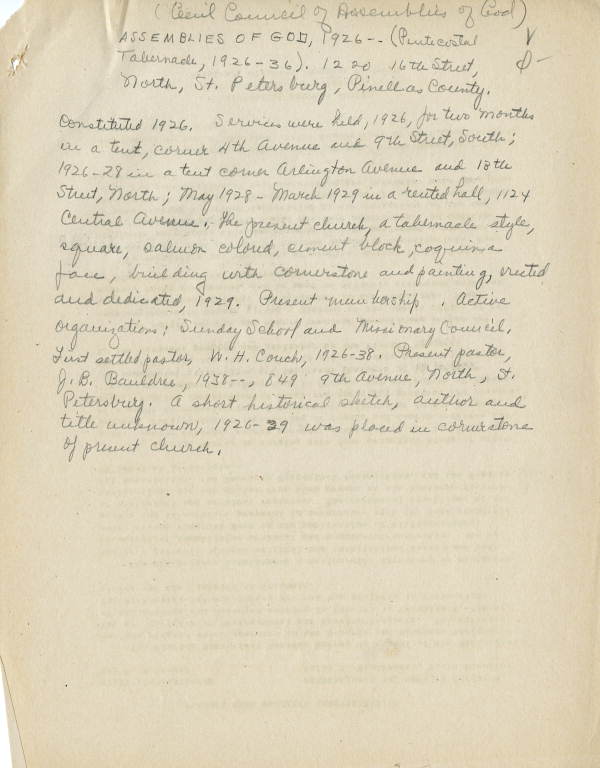 (Cecil Council of Assemblies of God)
ASSEMBLIES OF GOD, 1926-- (Pentecostal
Tabernacle, 1926-36). 1220 16th Street,
North, St. Petersburg, Pinellas County.
Constituted 1926. Services were held, 1926, for two months
in a tent, corner 4th Avenue and 9th Street, South;
1926-28 in a tent corner Arlington Avenue and 13th
Street, North; May 1928 - March 1929 in a rented hall, 1124
Central Avenue. The present church, a tabernacle style,
square, salmon colored, cement block, coquina
face, building with cornerstone and painting, erected
and dedicated, 1929. Present membership . Active
organizations: Sunday School and Missionary Council.
First settled pastor, W. H. Couch, 1926-38. Present pastor,
J. B. Bauldree, 1938--, 849 9th Avenue, North, St.
Petersburg. A short historical sketch, author and
title unknown, 1926-29 was placed in cornerstone
of present church.